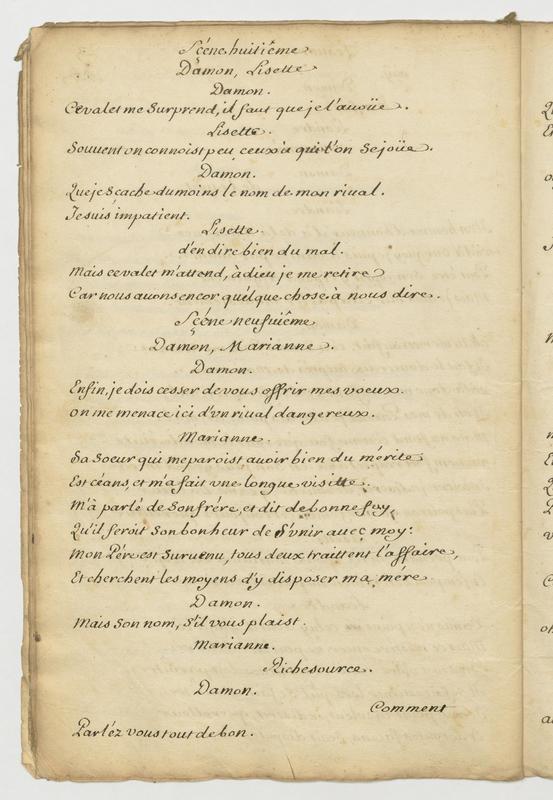 Scéne huitiême
Damon, Lisette
Damon.
Ce valet me Surprend, il faut que je l'auoüe.
Lisette.
Souuent on connoist peu ceux à qui l'on Se joüe.
Damon.
Que je Scache du moins le nom de mon riual.
Je suis impatient.
Lisette.
d'en dire bien du mal.
Mais ce valet m'attend, à dieu je me retire
Car nous auons encor quélque chose à nous dire.
Scéne neufuiême
Damon, Marianne.
Damon.
Enfin, je dois cesser de vous offrir mes voeux.
on me menace ici d'vn riual dangereux.
Marianne.
Sa Soeur qui me paroist auoir bien du mérite
Est céans, et m'a fait vne longue visitte.
M'à parlé de Son frére, et dit de bonne foy,
Qu'il feroit Son bonheur de S'vnir auec moy.
Mon Pére est Suruenu, tous deux traittent l'affaire,
Et cherchent les moyens d'y disposer ma mére
Damon.
Mais Son nom, S'il vous plaist.
Marianne.
Richesource.
Damon.
Comment
Parléz vous tout de bon.